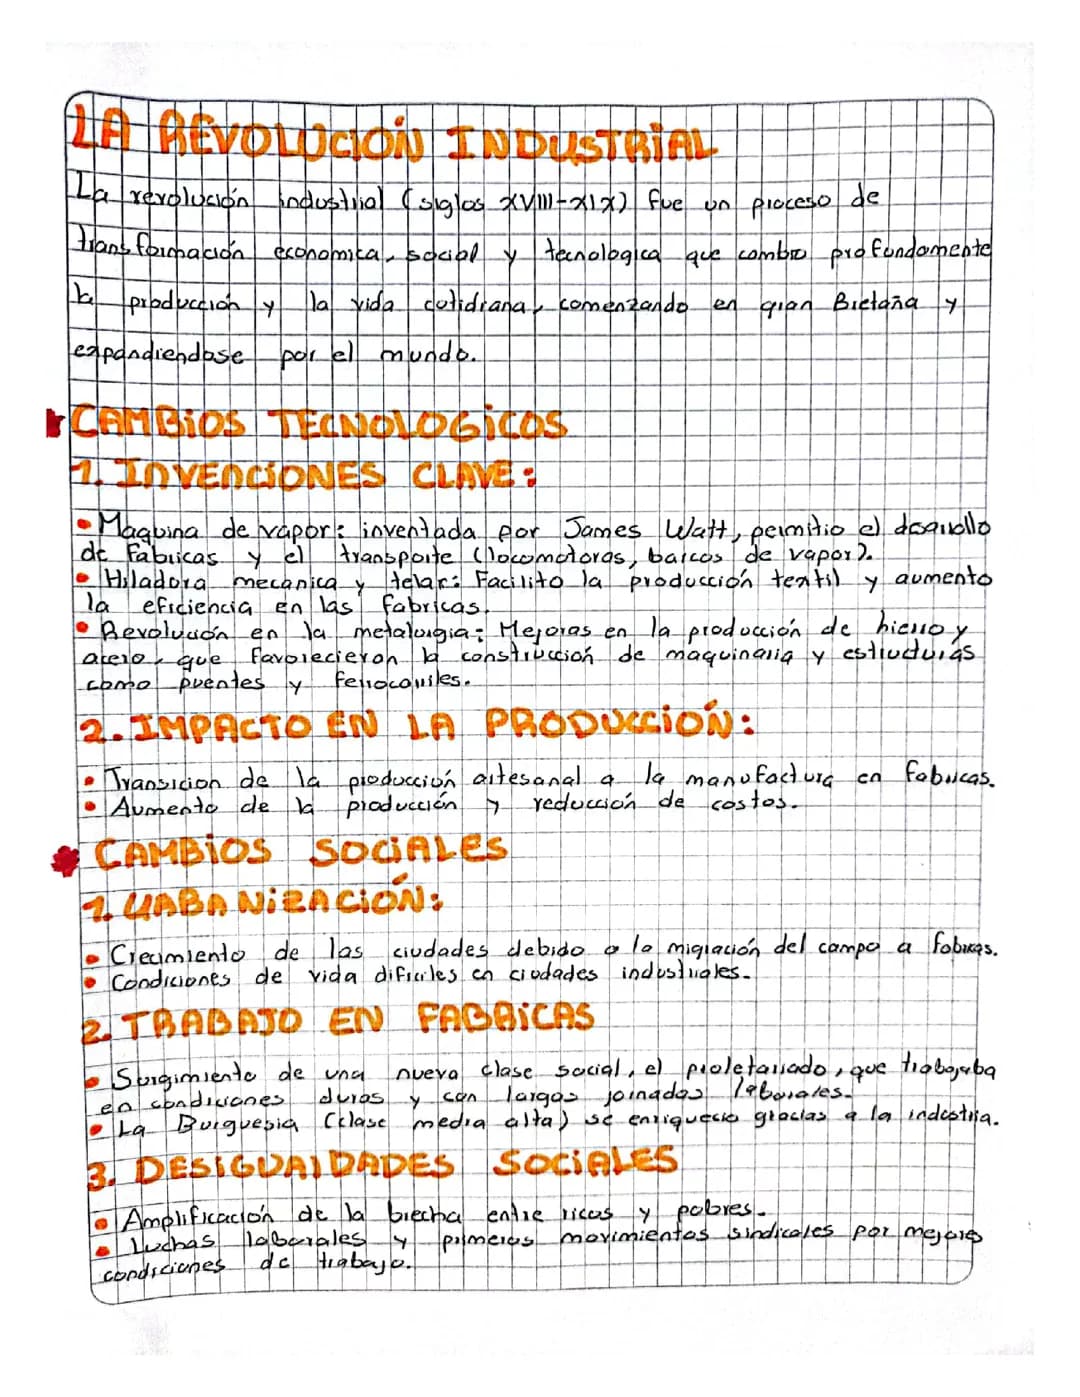 LA REVOLUCIÓN INDUSTRIAL
La revolución industrial (siglos XVIII-XIX) fue un proceso de
transformación economica, social y tecnologica que cambio profundamente
la producción y la vida cotidiana, comenzando en gran Bretaña y
expandiendose por el mundo.
CAMBIOS TECNOLOGICOS
1. INVENCIONES CLAVE:
• Maquina de vapor: inventada por James Watt, permitio el desarrollo
de Fabricas y el transporte (locomotoras, barcos de vapor).
• Hiladora mecanica y telar: Facilito la producción textil y aumento
la eficiencia en las fabricas.
• Revolución en la metalurgia: Mejoras en la producción de hierro y
acero, que favorecieron la construcción de maquinaria y estructuras
como puentes y ferrocarriles.
2. IMPACTO EN LA PRODUCCIÓN:
• Transicion de la producción artesanal a la manufactura en fabricas.
• Aumento de la producción y reducción de costos.
CAMBIOS SOCIALES
1. URBANIZACIÓN:
• Crecimiento de las ciudades debido a la migración del campo a fabricas.
• Condiciones de vida dificiles en ciudades industriales.
2. TRABAJO EN FABRICAS
• Surgimiento de una nueva clase social, el proletariado, que trabajaba
en condiciones duras y con largas jornadas laborales.
• La Burguesia (clase media alta) se enriquecio gracias a la industria.
3. DESIGUALDADES SOCIALES
• Amplificación de la brecha entre ricos y pobres.
• Luchas laborales y primeros movimientos sindicales por mejores
condiciones de trabajo.